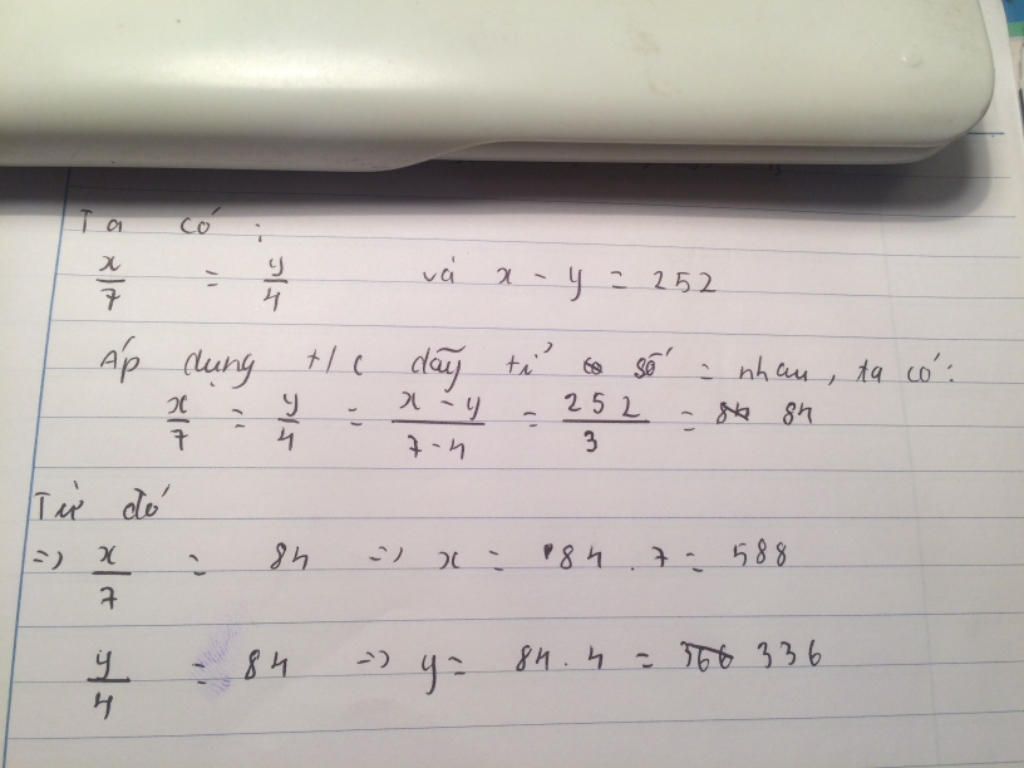 Ta có :
x/7 = y/4 và x - y = 252
Áp dụng t/c dãy tỉ số = nhau, ta có :
x/7 = y/4 = (x - y)/(7 - 4) = 252/3 = 84
Từ đó
=> x/7 = 84 => x = 84 . 7 = 588
y/4 = 84 => y = 84 . 4 = 336